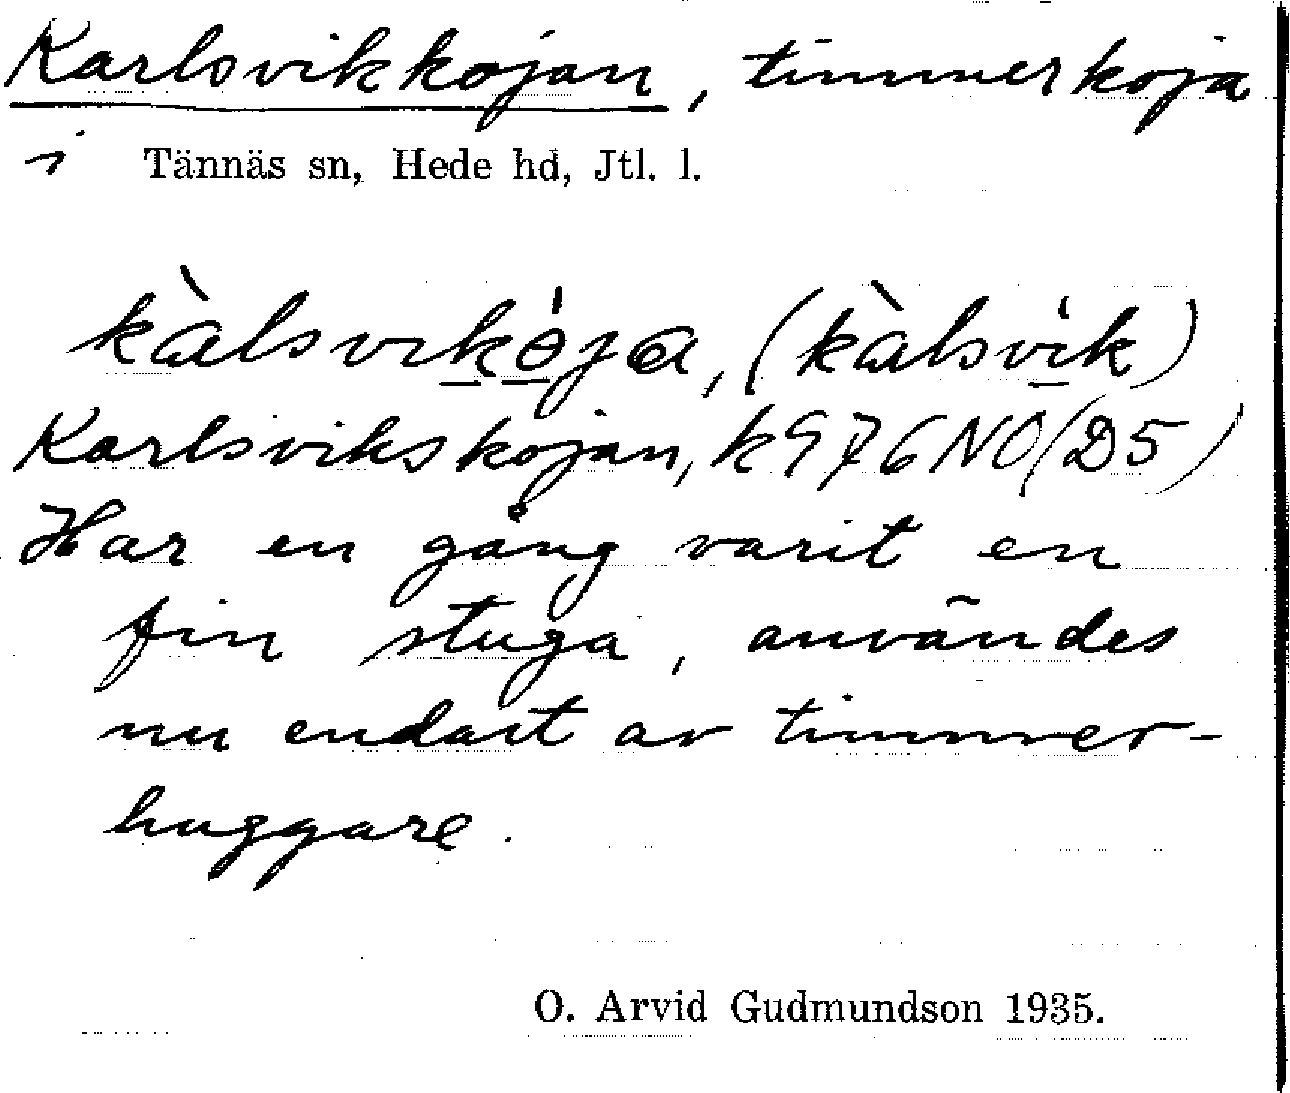 Karlsvikkojan, timmerkoja
i Tännäs sn, Hede hd, Jtl. l.
kàlsviko̍ja, (kàlsvi̍k)
Karlsvikskojan, k976NO(D5)
Har en gång varit en
fin stuga, användes
nu endast av timmer-
huggare.
O. Arvid Gudmundson 1935.